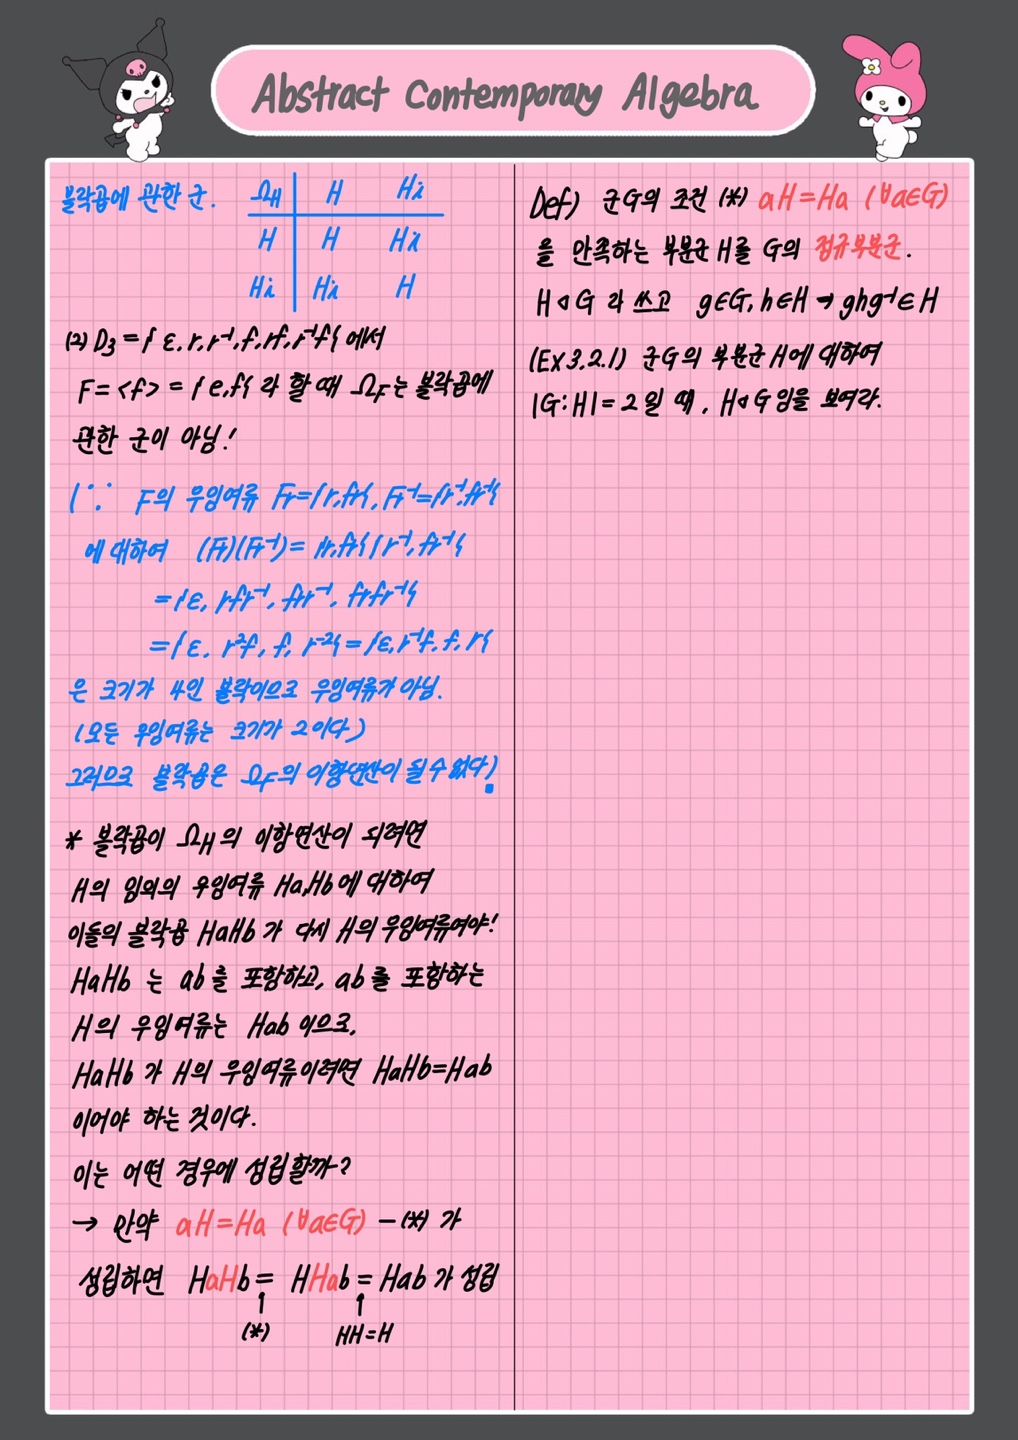 Abstract Contemporary Algebra
블락곱에 관한 군.
Ω_H | H Hi
H | H Hi
Hi | Hi H
(2) D₃ = { ε, r, r⁻¹, f, rf, r⁻¹f } 에서
F = <f> = { e, f } 라 할 때 Ω_F는 블락곱에
관한 군이 아님!
(∵ F의 우잉여류 Fr={r,fr}, Fr⁻¹={r⁻¹,fr⁻¹}
에 대하여 (Fr)(Fr⁻¹) = {r,fr}{r⁻¹, fr⁻¹}
= {ε, rfr⁻¹, frr⁻¹, frfr⁻¹}
= {ε, r²f, f, r⁻²} = {ε, r⁻¹f, f, r}
은 크기가 4인 블락이므로 우잉여류가 아님.
(모든 우잉여류는 크기가 2이다)
그러므로 블락곱은 Ω_F의 이항연산이 될 수 없다)
* 블락곱이 Ω_H의 이항연산이 되려면
H의 임의의 우잉여류 Ha, Hb에 대하여
이들의 블락곱 HaHb가 다시 H의 우잉여류여야!
HaHb 는 ab를 포함하고, ab를 포함하는
H의 우잉여류는 Hab 이므로,
HaHb가 H의 우잉여류이려면 HaHb=Hab
이어야 하는 것이다.
이는 어떤 경우에 성립할까?
→ 만약 aH=Ha (∀a∈G) — (*) 가
성립하면 HaHb = HHab = Hab가 성립
(*) HH=H
Def) 군G의 조건 (*) aH=Ha (∀a∈G)
을 만족하는 부분군 H를 G의 정규부분군.
H ◁ G 라 쓰고 g∈G, h∈H → ghg⁻¹∈H
(Ex 3.2.1) 군G의 부분군 H에 대하여
|G:H|=2 일 때, H◁G 임을 보여라.